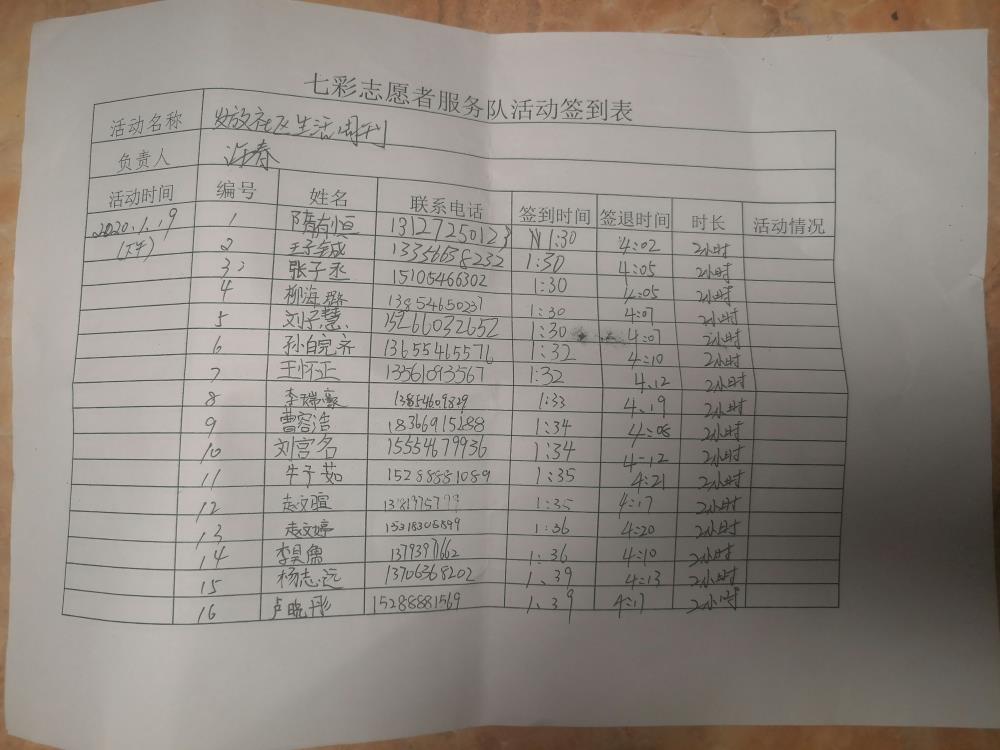 七彩志愿者服务队活动签到表
活动名称 发放社区生活周刊
负责人 春
活动时间 编号 姓名 联系电话 签到时间 签退时间 时长 活动情况
2020.1.19 1 隋有恒 13127250123 1:30 4:02 2小时
(下午) 2 王子铖 13356638232 1:30 4:05 2小时
3 张子丞 15105466302 1:30 4:05 2小时
4 柳海 13854650237 1:30 4:07 2小时
5 刘子慧 15266032652 1:30 4:07 2小时
6 孙白宛齐 13655465576 1:32 4:10 2小时
7 王怀正 13561093567 1:32 4.12 2小时
8 李瑞豪 13854609829 1:33 4.19 2小时
9 曹容浩 18366915288 1:34 4:08 2小时
10 刘宫名 15554679936 1:34 4:12 2小时
11 牛子茹 15288881089 1:35 4:21 2小时
12 赵文暄 1:35 4:17 2小时
13 赵文婷 15318305899 1:36 4:20 2小时
14 李昊儒 1:36 4:10 2小时
15 杨志远 13706368202 1.39 4:13 2小时
16 卢晓彤 15288881569 1.39 4:17 2小时